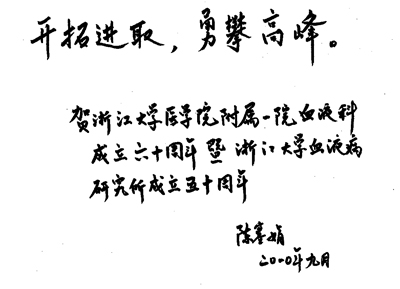 开拓进取，勇攀高峰。
贺浙江大学医学院附属一院血液科
成立六十周年暨浙江大学血液病
研究所成立五十周年
陈塞娟
二〇〇〇年九月